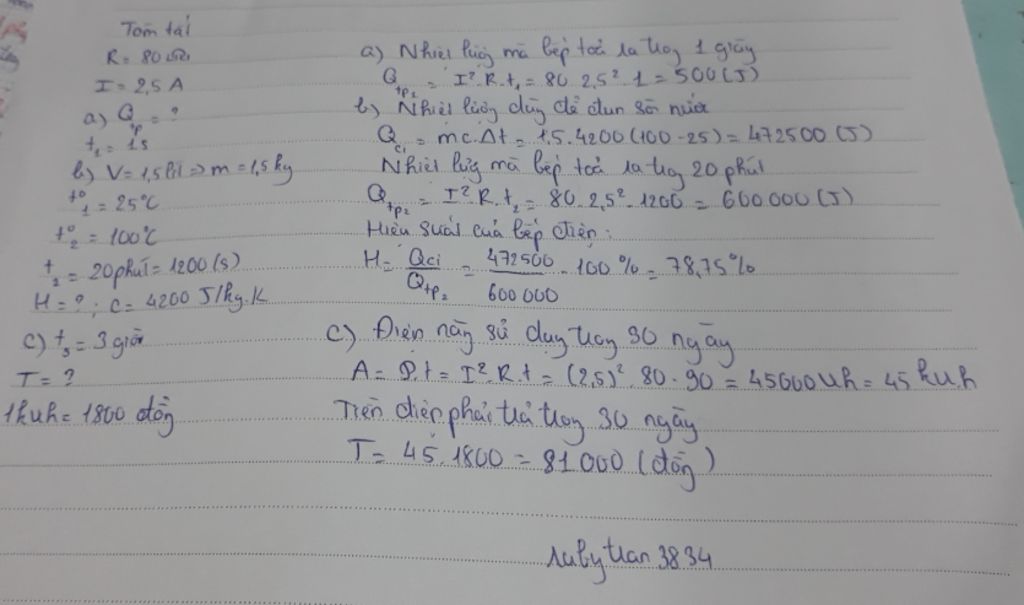 Tóm tắt
R = 80 Ω
I = 2,5 A
a) Qtp = ?
t1 = 1s
b) V = 1,5 lít => m = 1,5 kg
t°1 = 25°C
t°2 = 100°C
t2 = 20 phút = 1200 (s)
H = ? ; c = 4200 J/kg.K
c) t3 = 3 giờ
T = ?
1kwh = 1800 đồng
a) Nhiệt lượng mà bếp toả ra trong 1 giây
Qtp2 = I².R.t1 = 80.2,5².1 = 500 (J)
b) Nhiệt lượng dùng để đun sôi nước
Qci = mc.Δt = 1,5.4200(100-25) = 472500 (J)
Nhiệt lượng mà bếp toả ra trong 20 phút
Qtp2 = I².R.t2 = 80.2,5².1200 = 600000 (J)
Hiệu suất của bếp điện:
H = Qci/Qtp2 = 472500/600000 . 100% = 78,75%
c) Điện năng sử dụng trong 30 ngày
A = P.t = I².R.t = (2,5)².80.90 = 45000wh = 45 kwh
Tiền điện phải trả trong 30 ngày
T = 45.1800 = 81000 (đồng)
rubytran3834